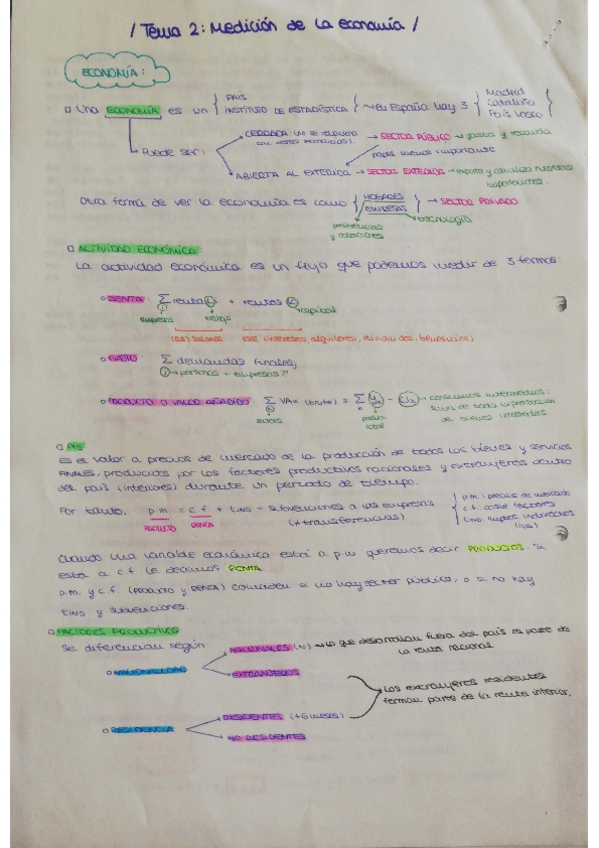 / Tema 2: Medición de la economía /
ECONOMÍA:
Una ECONOMÍA es un { PAÍS
INSTITUTO DE ESTADÍSTICA } en España hay 3 { Madrid
Cataluña
País Vasco }
Puede ser:
CERRADA (no se relaciona con otras economías). → SECTOR PÚBLICO → gasta y recauda
menos importante
ABIERTA AL EXTERIOR → SECTOR EXTERIOR → exporta y
importaciones.
Otra forma de ver la economía es como { HOGARES
EMPRESAS } → SECTOR PRIVADO
preferencias
y dotaciones
tecnología
ACTIVIDAD ECONÓMICA:
La actividad económica es un flujo que podemos medir de 3 formas:
RENTA: Σ rentas L + rentas K → capital
empresas trabajo
salarios (intereses, alquileres, dividendos, beneficios)
GASTO: Σ demandas finales;
personas + empresas
PRODUCTO O VALOR AÑADIDO: Σ VAK (bruto) = Σ
sectores
consumos intermedios:
suma de toda la producción
de bienes intermedios
PIB
Es el valor a precios de mercado de la producción de todos los bienes y servicios
FINALES, producidos por los factores productivos nacionales y extranjeros dentro
del país (interiores) durante un periodo de tiempo.
Por tanto, p.m. = c.f. + tino - subvenciones a las empresas
(≠ transferencias)
PRODUCTO RENTA
p.m.: precios de mercado
c.f. coste factores
tino: impt indirectos
(IVA)
Cuando una variable económica está a p.m queremos decir PRODUCTOS. Si
esta a c.f. le decimos RENTA.
p.m. y c.f. (PRODUCTO y RENTA) coinciden si no hay sector público, o si no hay
tino y subvenciones.
FACTORES PRODUCTIVOS
Se diferencian según
NACIONALIDAD
NACIONALES (N) → lo que desarrollan fuera del país es parte de
la renta nacional
EXTRANJEROS
Los extranjeros residentes
forman parte de la renta interior.
RESIDENCIA
RESIDENTES (+6 meses)
NO RESIDENTES